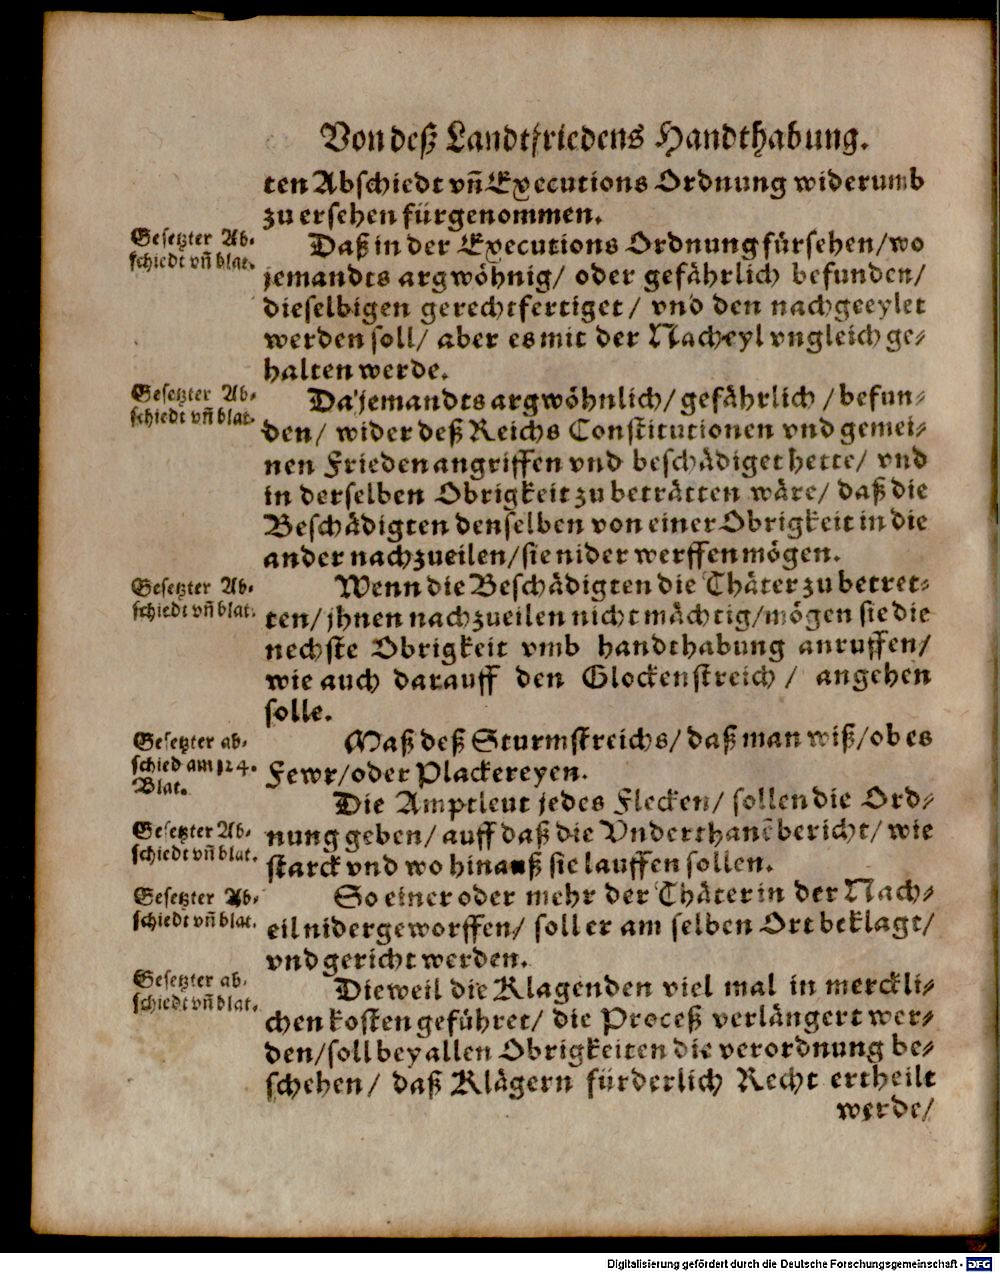 Von deß Landtfriedens Handthabung.
ten Abschiedt vñ Executions Ordnung widerumb
zu ersehen fürgenommen.
Gesetzter Ab-
schiedt vñ blat.
Daß in der Executions Ordnung fürsehen/ wo
jemandts argwöhnig/ oder gefährlich befunden/
dieselbigen gerechtfertiget/ vnd den nachgeeylet
werden soll/ aber es mit der Nacheyl vngleich ge-
halten werde.
Gesetzter Ab-
schiedt vñ blat.
Da jemandts argwöhnlich/ gefährlich/ befun-
den/ wider deß Reichs Constitutionen vnd gemei-
nen Frieden angriffen vnd beschädiget hette/ vnd
in derselben Obrigkeit zu beträtten wäre/ daß die
Beschädigten denselben von einer Obrigkeit in die
ander nachzueilen/ sie nider werffen mögen.
Gesetzter Ab-
schiedt vñ blat.
Wenn die Beschädigten die Thäter zu betret-
ten/ jhnen nachzueilen nicht mächtig/ mögen sie die
nechste Obrigkeit vmb handthabung anruffen/
wie auch darauff den Glockenstreich/ angehen
solle.
Gesetzter ab-
schied am 124.
Blat.
Maß deß Sturmstreichs/ daß man wiß/ ob es
Fewr/ oder Plackereyen.
Gesetzter Ab-
schiedt vñ blat.
Die Amptleut jedes Flecken/ sollen die Ord-
nung geben/ auff daß die Vnderthanẽ bericht/ wie
starck vnd wo hinauß sie lauffen sollen.
Gesetzter Ab-
schiedt vñ blat.
So einer oder mehr der Thäter in der Nach-
eil nidergeworffen/ soll er am selben Ort beklagt/
vnd gericht werden.
Gesetzter ab-
schiedt vñ blat.
Dieweil die Klagenden viel mal in merckli-
chen kosten geführet/ die Proceß verlängert wer-
den/ soll bey allen Obrigkeiten die verordnung be-
schehen/ daß Klägern fürderlich Recht ertheilt
werde/
Digitalisierung gefördert durch die Deutsche Forschungsgemeinschaft - DFG